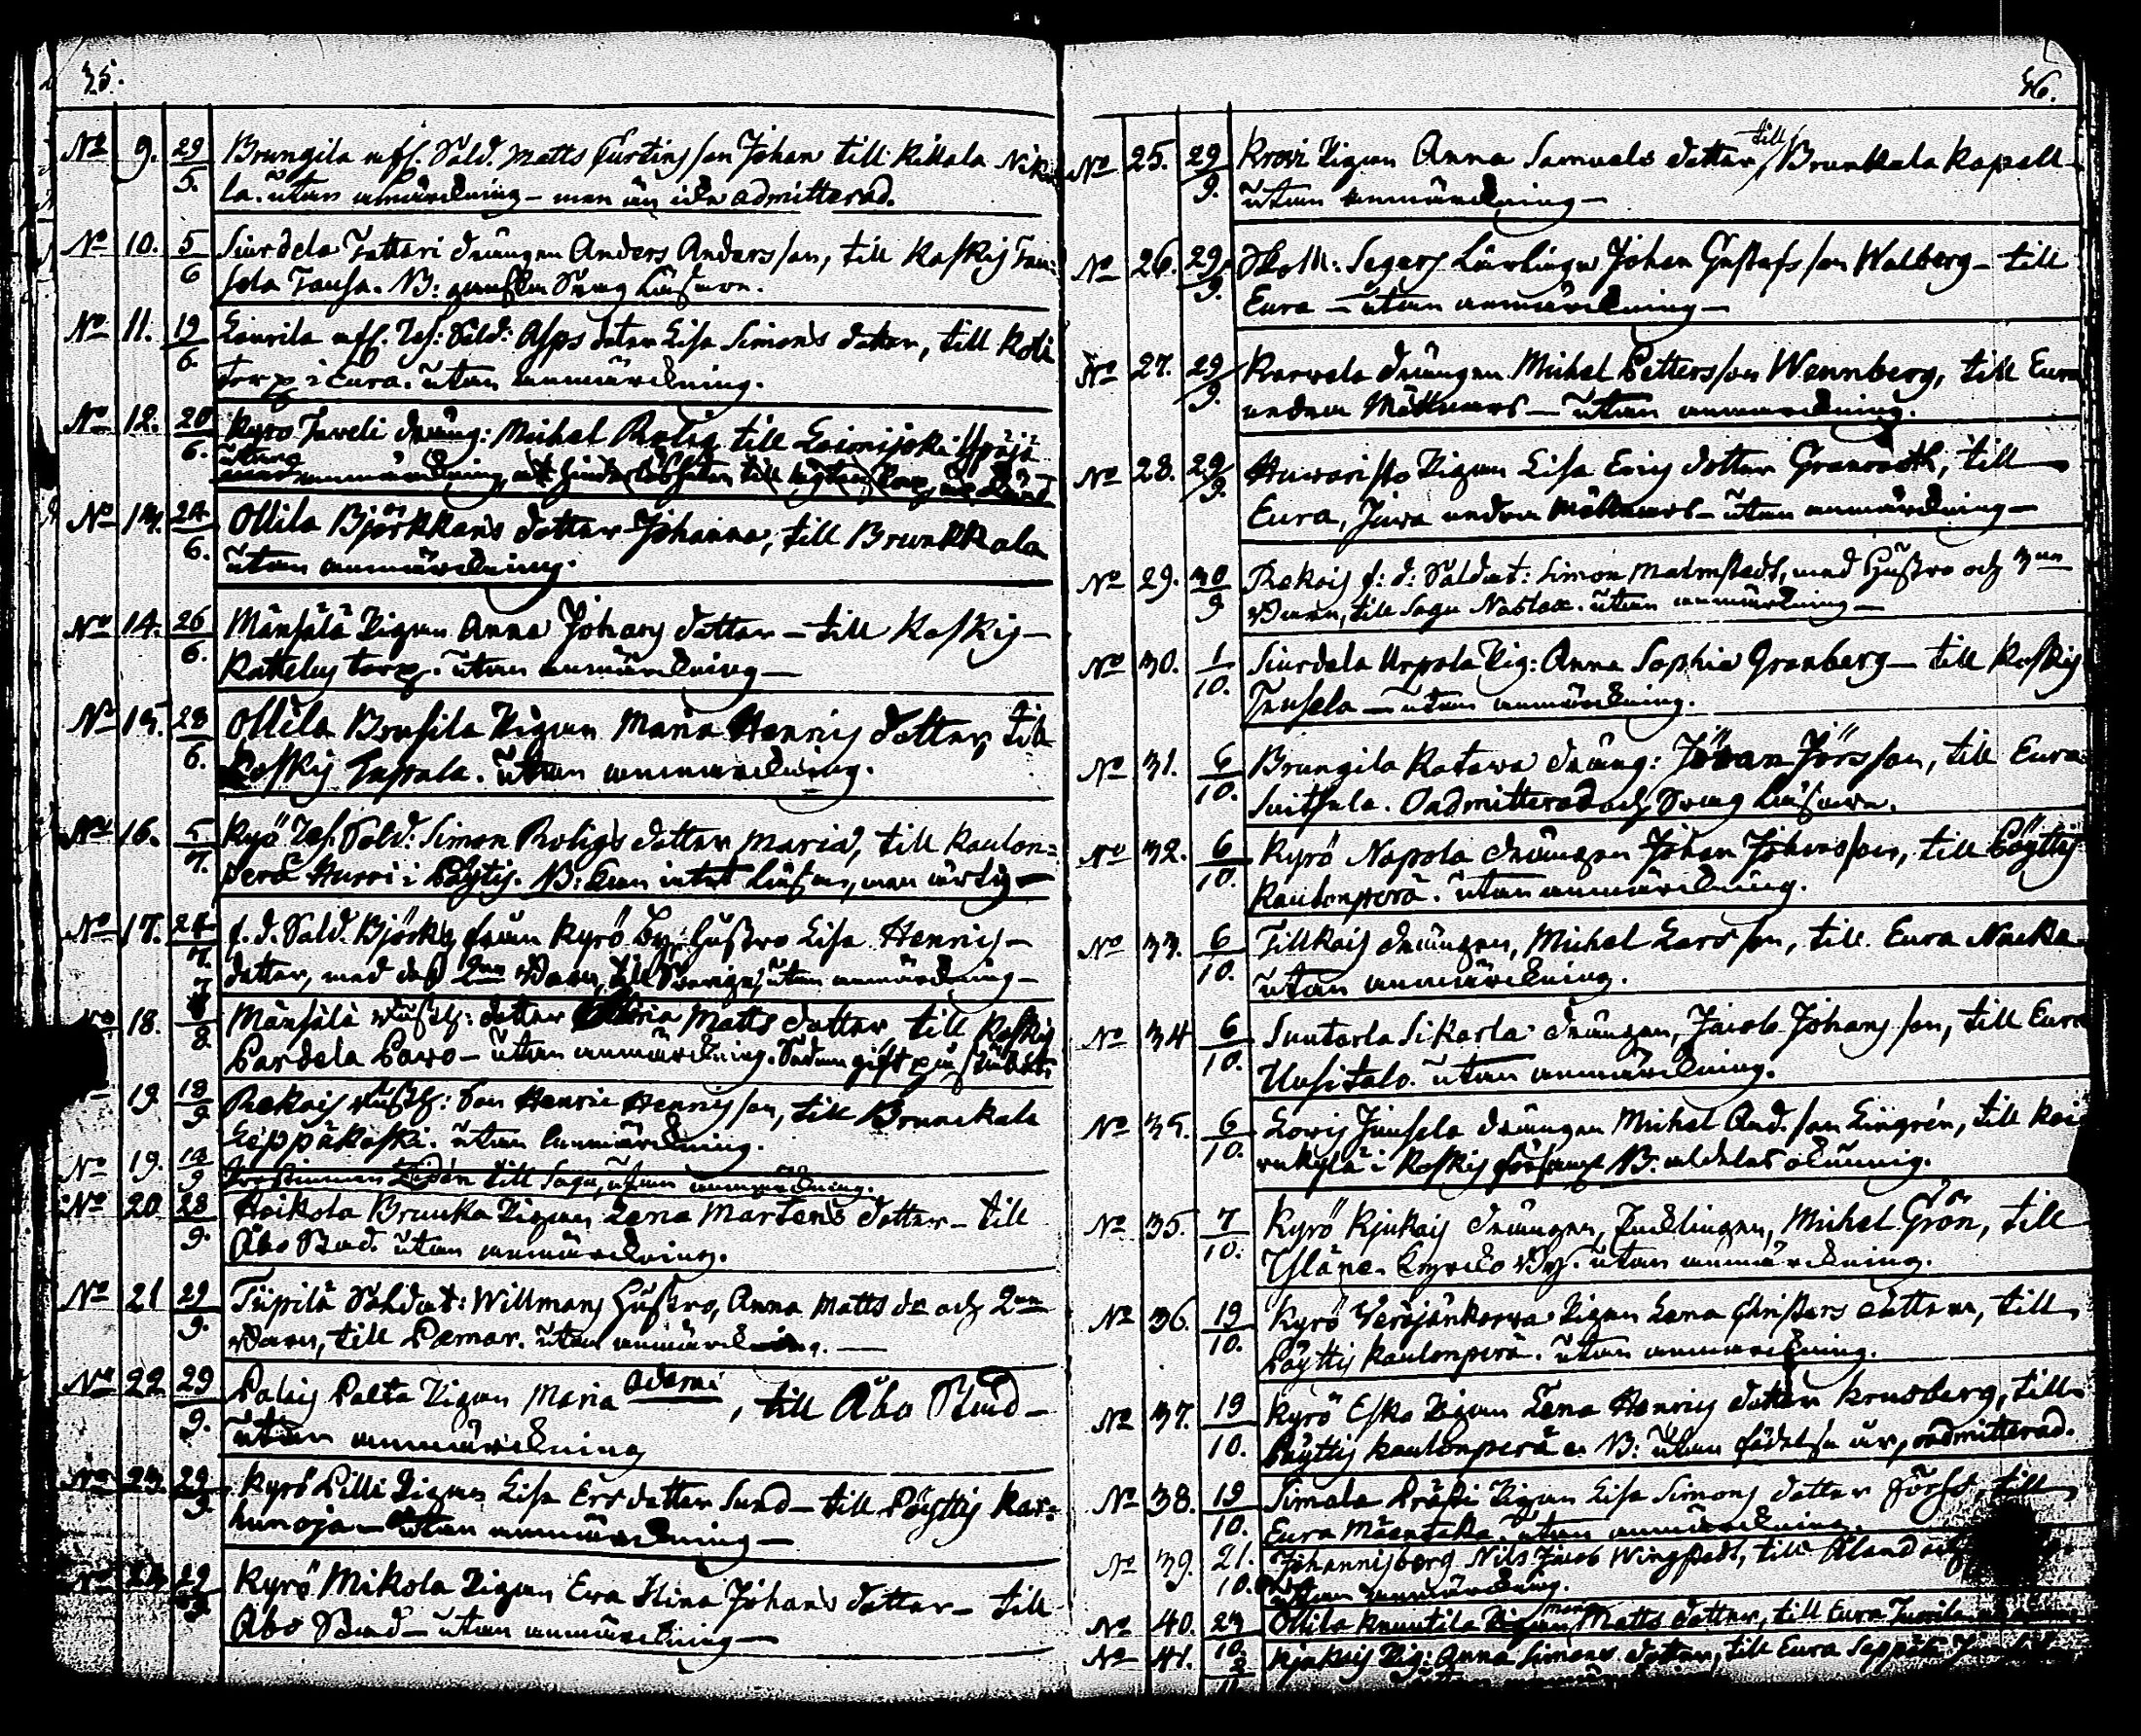 35.
No 9. 29/5. Brungila Sold. Matts son Johan till Kikala Niki
la. utan anmärckning – men än icke admitterad.
No 10. 5/6 Siurdela Tattari drängen Anders Andersson, till Koskis Tau:
sela Tausa. NB: ganska Svag Läsare.
No 11. 19/6. Sold: dotter Lisa Simons dotter, till Koti
Torp i Eura. utan anmärckning.
No 12. 20/6. Kyro Juveli dräng: Michel Rolig till Loimijoki Ypäjä
utan anmärckning
No 13. 24/6. Ollila Björkkens dotter Johanna, till Brunkkala
utan anmärckning.
No 14. 26/6. Mänsälä Pigan Anna Johans dotter – till Koskis –
torp. utan anmärckning –
No 15. 28/6. Ollila Brusila Pigan Maria Henrics dotter, till
Koskis Tapala. utan anmärckning.
No 16. 5/7. Kyrö Sold: Simon Roligs dotter Maria, till Kaulan=
perä Hurri i Pöytis. NB: kan intet Läsa, men
No 17. 24/7. f. d. Sold. Björks från Kyrö By: Hustro Lisa Henrics –
dotter, med des 2ne Barn, till Sverige, utan anmärckning –
No 18. 7/8 Mänsälä dotter Maria Matts dotter till Koskis
Pardela Pavo – utan anmärckning.
19 18/9 Rekois Son Henric Henrics son, till Brunckala
Leppäkoski. utan anmärckning.
No 19. 18/9 till Sagu, utan anmärckning.
No 20 28/9. Heikola Brunka Pigan Lena Martens dotter – till
Åbo Stad. utan anmärckning.
No 21 29/9. Tüpilä Soldat: Willmans Hustro, Anna Matts dr och 2ne
Barn, till Pemar. utan anmärckning. –
No 22 29/9. Palais Palta Pigan Maria Adami, till Åbo Stad –
utan anmärckning
No 23. 29/9. Kyrö Pilli Pigan Lisa Ers dotter Sund – till Pöyttis Kar=
hunoja – utan anmärckning –
24 29/9. Kyrö Mikola Pigan Eva Stina Johans dotter – till
Åbo Stad – utan anmärckning –
36.
No 25. 29/9. Krovi Pigan Anna Samuels dotter, till Brunkkala Kapell –
utan anmärckning –
No 26. 29/9. Lärlingen Johan Gustafs son Walberg – till
Eura – utan anmärckning –
No 27. 29/9. Karvela drängen Michel Petters son Wennberg, till Eura
– utan anmärckning.
No 28. 29/9. Huvaristo Pigan Lisa Erics dotter Granroth, till
Eura, utan anmärckning –
No 29. 30/9 Rekois f. d. Soldat: Simon Malmstedt, med Hustro och 3ne
Barn, till Sagu. utan anmärckning –
No 30. 1/10. Siurdala Urpola Pig: Anna Sophia Granberg – till Koskis
Tausela – utan anmärckning.
No 31. 6/10. Brungila Katava dräng: Jöran Jörsson, till Eura
Suitsula. Oadmitterad och Svag Läsare.
No 32. 6/10. Kyrö Napola drängen Johan Johansson, till Pöyttis
Kaulanperä. utan anmärckning.
No 33. 6/10. Tillkais drängen, Michel Larsson, till Eura Nauka
utan anmärckning.
No 34 6/10. Suutarla Sikarla drängen, Jacob Johans son, till Eura
Uusitalo. utan anmärckning.
No 35. 6/10. Lovis Jünsela drängen Michel And. son Lingrén, till Kai
vukylä i Koskis NB. aldeles okunnig.
No 35. 7/10. Kyrö Kjukais drängen, Michel Grön, till
Yläne. Kyrko By. utan anmärckning.
No 36. 19/10. Kyrö Verajänkorva Pigan Lena Christers dotter, till
Pöyttis Kaulanperä. utan anmärckning.
No 37. 19/10. Kyrö Esko Pigan Lena Henrics dotter Krusberg, till
Pöyttis Kaulanperä. NB: utan födelse år, oadmitterad.
No 38. 19/10. Simala Pigan Lisa Simons dotter Förss, till
Eura Mäentaka. utan anmärckning.
No 39. 21/10. Johannisberg Nils Jacob Wingstedt, till Åland
utan anmärckning.
No 40. 24/10 Ollila Knuutila Maria Matts dotter, till Eura
No 41. 2/11 Kjukais Pig: Anna Simons dotter, till Eura Seppälä